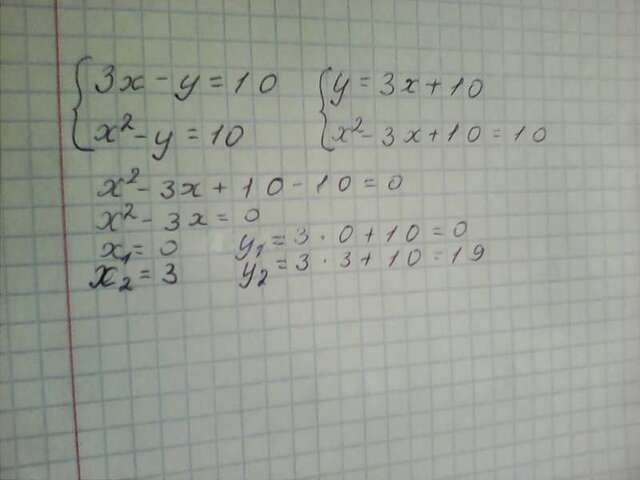 3x - y = 10 y = 3x + 10
x² - y = 10 x² - 3x + 10 = 10
x² - 3x + 10 - 10 = 0
x² - 3x = 0
x₁ = 0 y₁ = 3 · 0 + 10 = 0
x₂ = 3 y₂ = 3 · 3 + 10 = 19